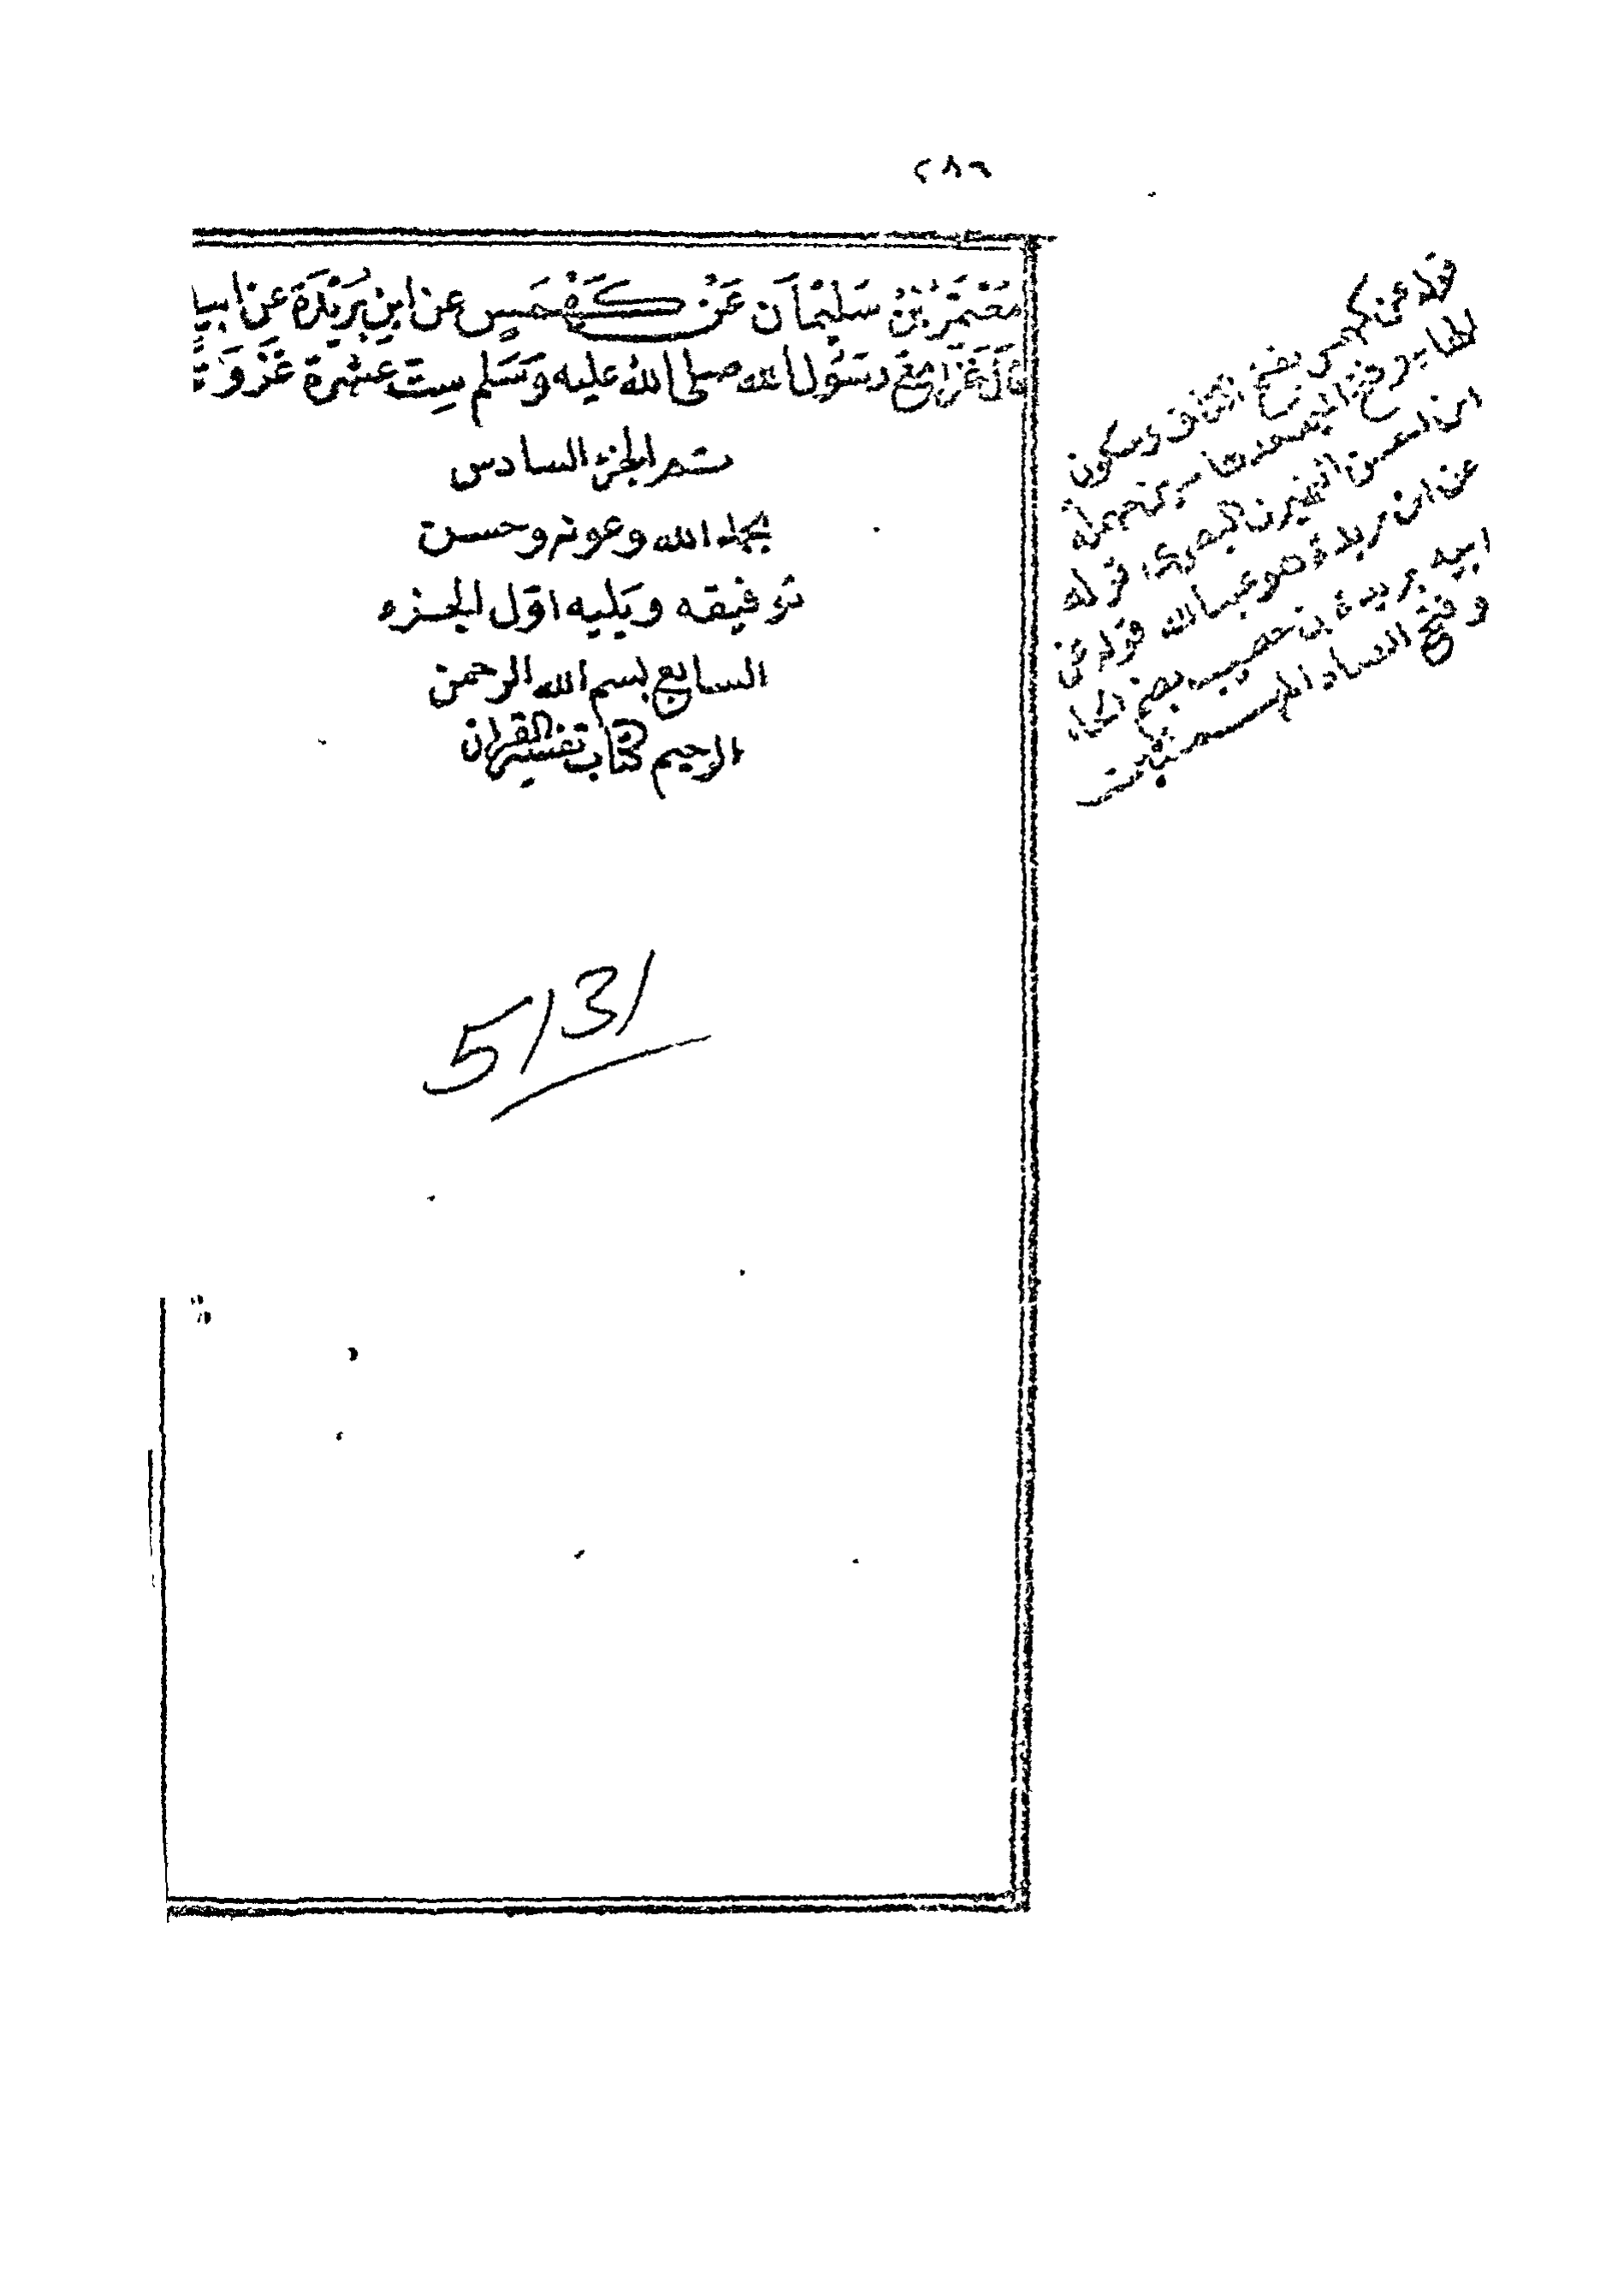 ٢٨٦
مُعْتَمِرُ بْنُ سَلِيْمَانَ عَنْ كَهْمَسٍ عن ابنِ بُرَيْدَةَ عن ابيه
قالَ غَزَا مَعَ رسَوُل الله صلى اللهُ عليه وَسَلم سِتَّ عشرة غَزْوَة
تم الجزء السادس
بحمد الله وعونه وحسن
توفيقه ويَليه اوّل الجزء
السابع بسم الله الرحمن
الرحيم كتاب تفسير القران
قوله عن كهمس بفتح الكاف وسكون
الهاء وفتح الميم بعدها سين مهملة
ابن الحسن النميرى البصرى قوله
عن ابن بريدة هو عبدالله قوله عن
ابيه بريدة بن حصيب بضم الحاء
وفتح الصاد المهملتين
5131